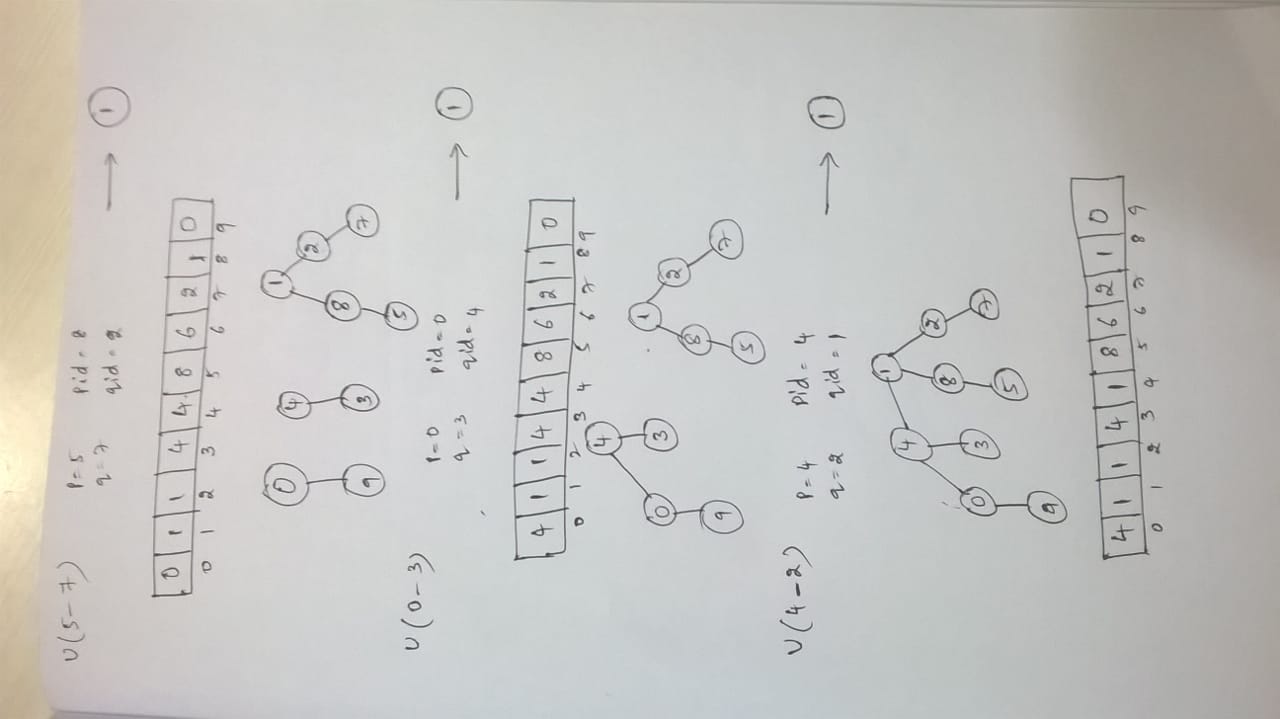 U(5-7) P=5 Pid=8 → 1
q=7 qid=2
0 1 1 4 4 8 6 2 1 0
0 1 2 3 4 5 6 7 8 9
0 4 1
2
8
9 3 7
5
U(0-3) P=0 Pid=0 → 1
q=3 qid=4
4 1 1 4 4 8 6 2 1 0
0 1 2 3 4 5 6 7 8 9
4 1
0 3 8 2
9 5 7
U(4-2) P=4 Pid=4 → 1
q=2 qid=1
1
4 2
8
0 3 7
9 5
4 1 1 4 1 8 6 2 1 0
0 1 2 3 4 5 6 7 8 9